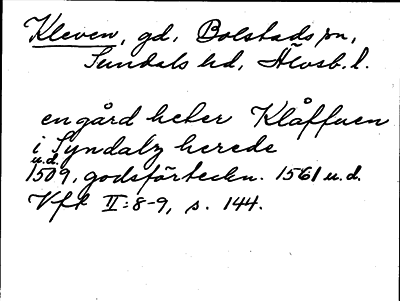 Kleven, gd, Bolstads sn,
Sundals hd, Älvsb. l.
en gård heter Klåffuen
i Syndalz herede
u.d.
1509, godsförteckn. 1561 u.d.
Vft II:8-9, s. 144.